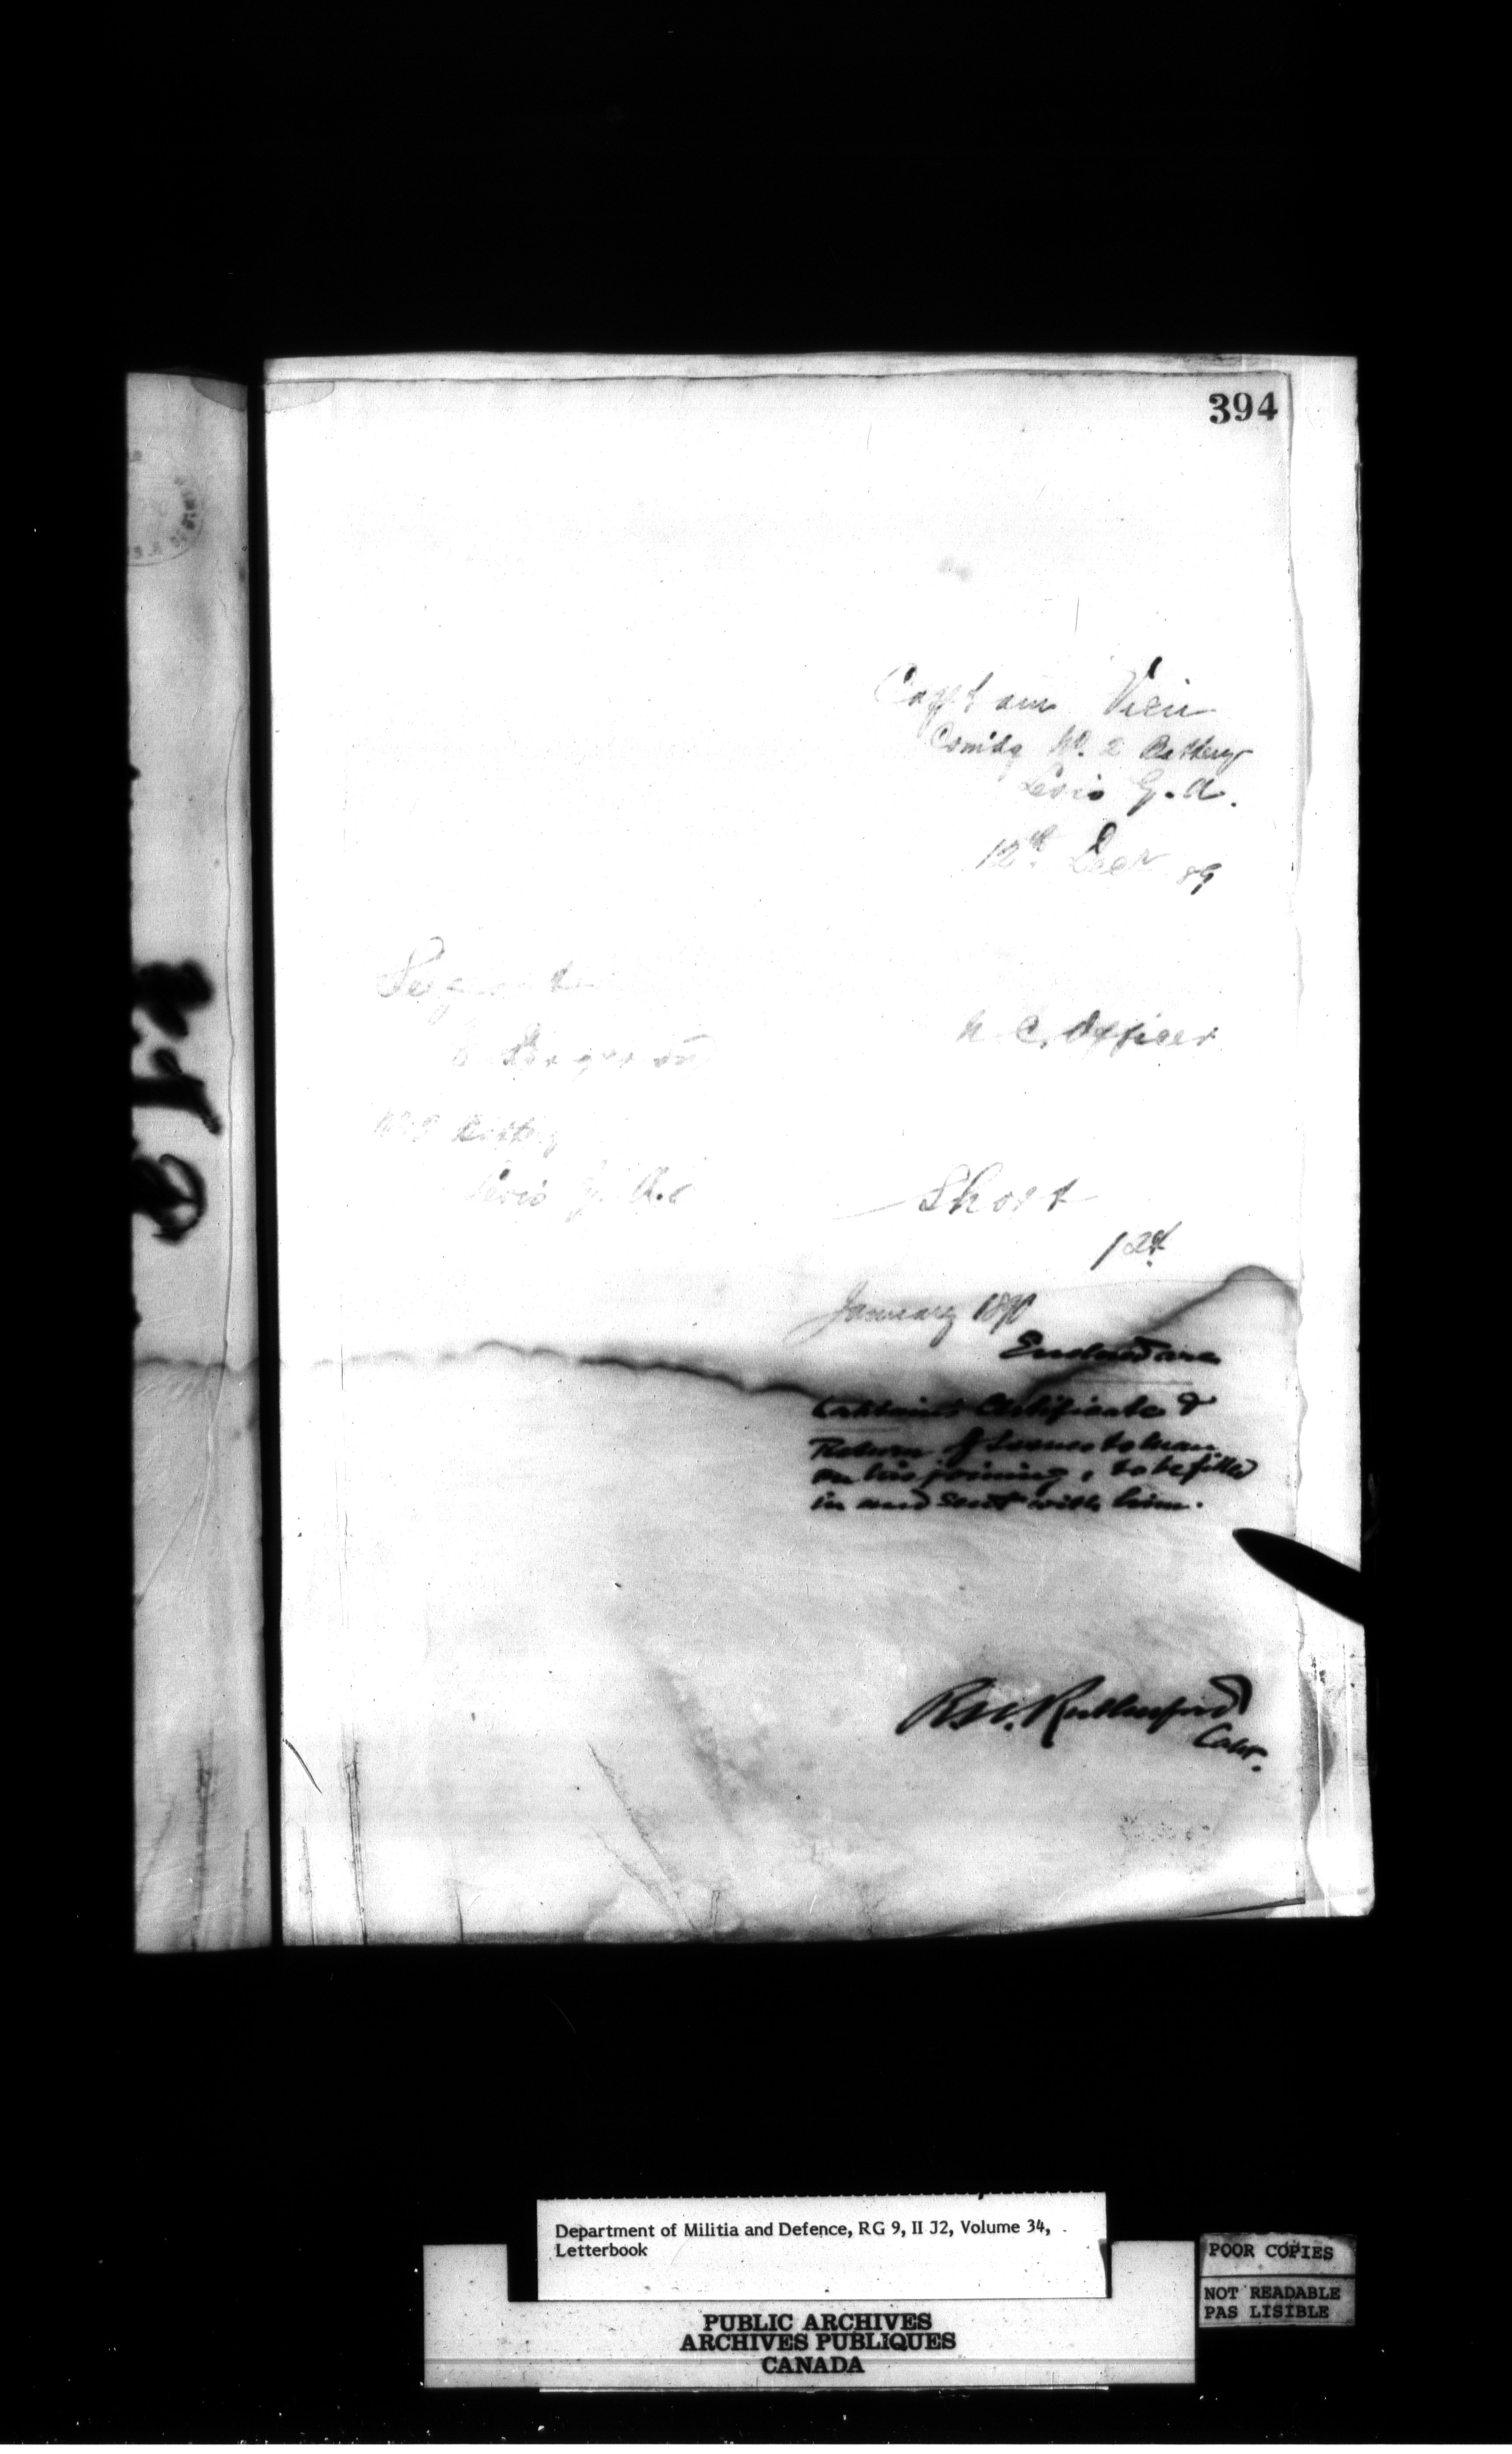 394
Captain Vien
Comdg No. 2 Battery
Levis G. A.
12th Decr 89
N. C. Officer
No. 2 Battery
Levis G. A.
Short
12th
January 1890
Enclosed are
Certificate &
Return of Issues to man
on his joining, to be filled
in and sent with him.
R.W. Rutherford
Capt.
Department of Militia and Defence, RG 9, II J2, Volume 34,
Letterbook
POOR COPIES
NOT READABLE
PAS LISIBLE
PUBLIC ARCHIVES
ARCHIVES PUBLIQUES
CANADA